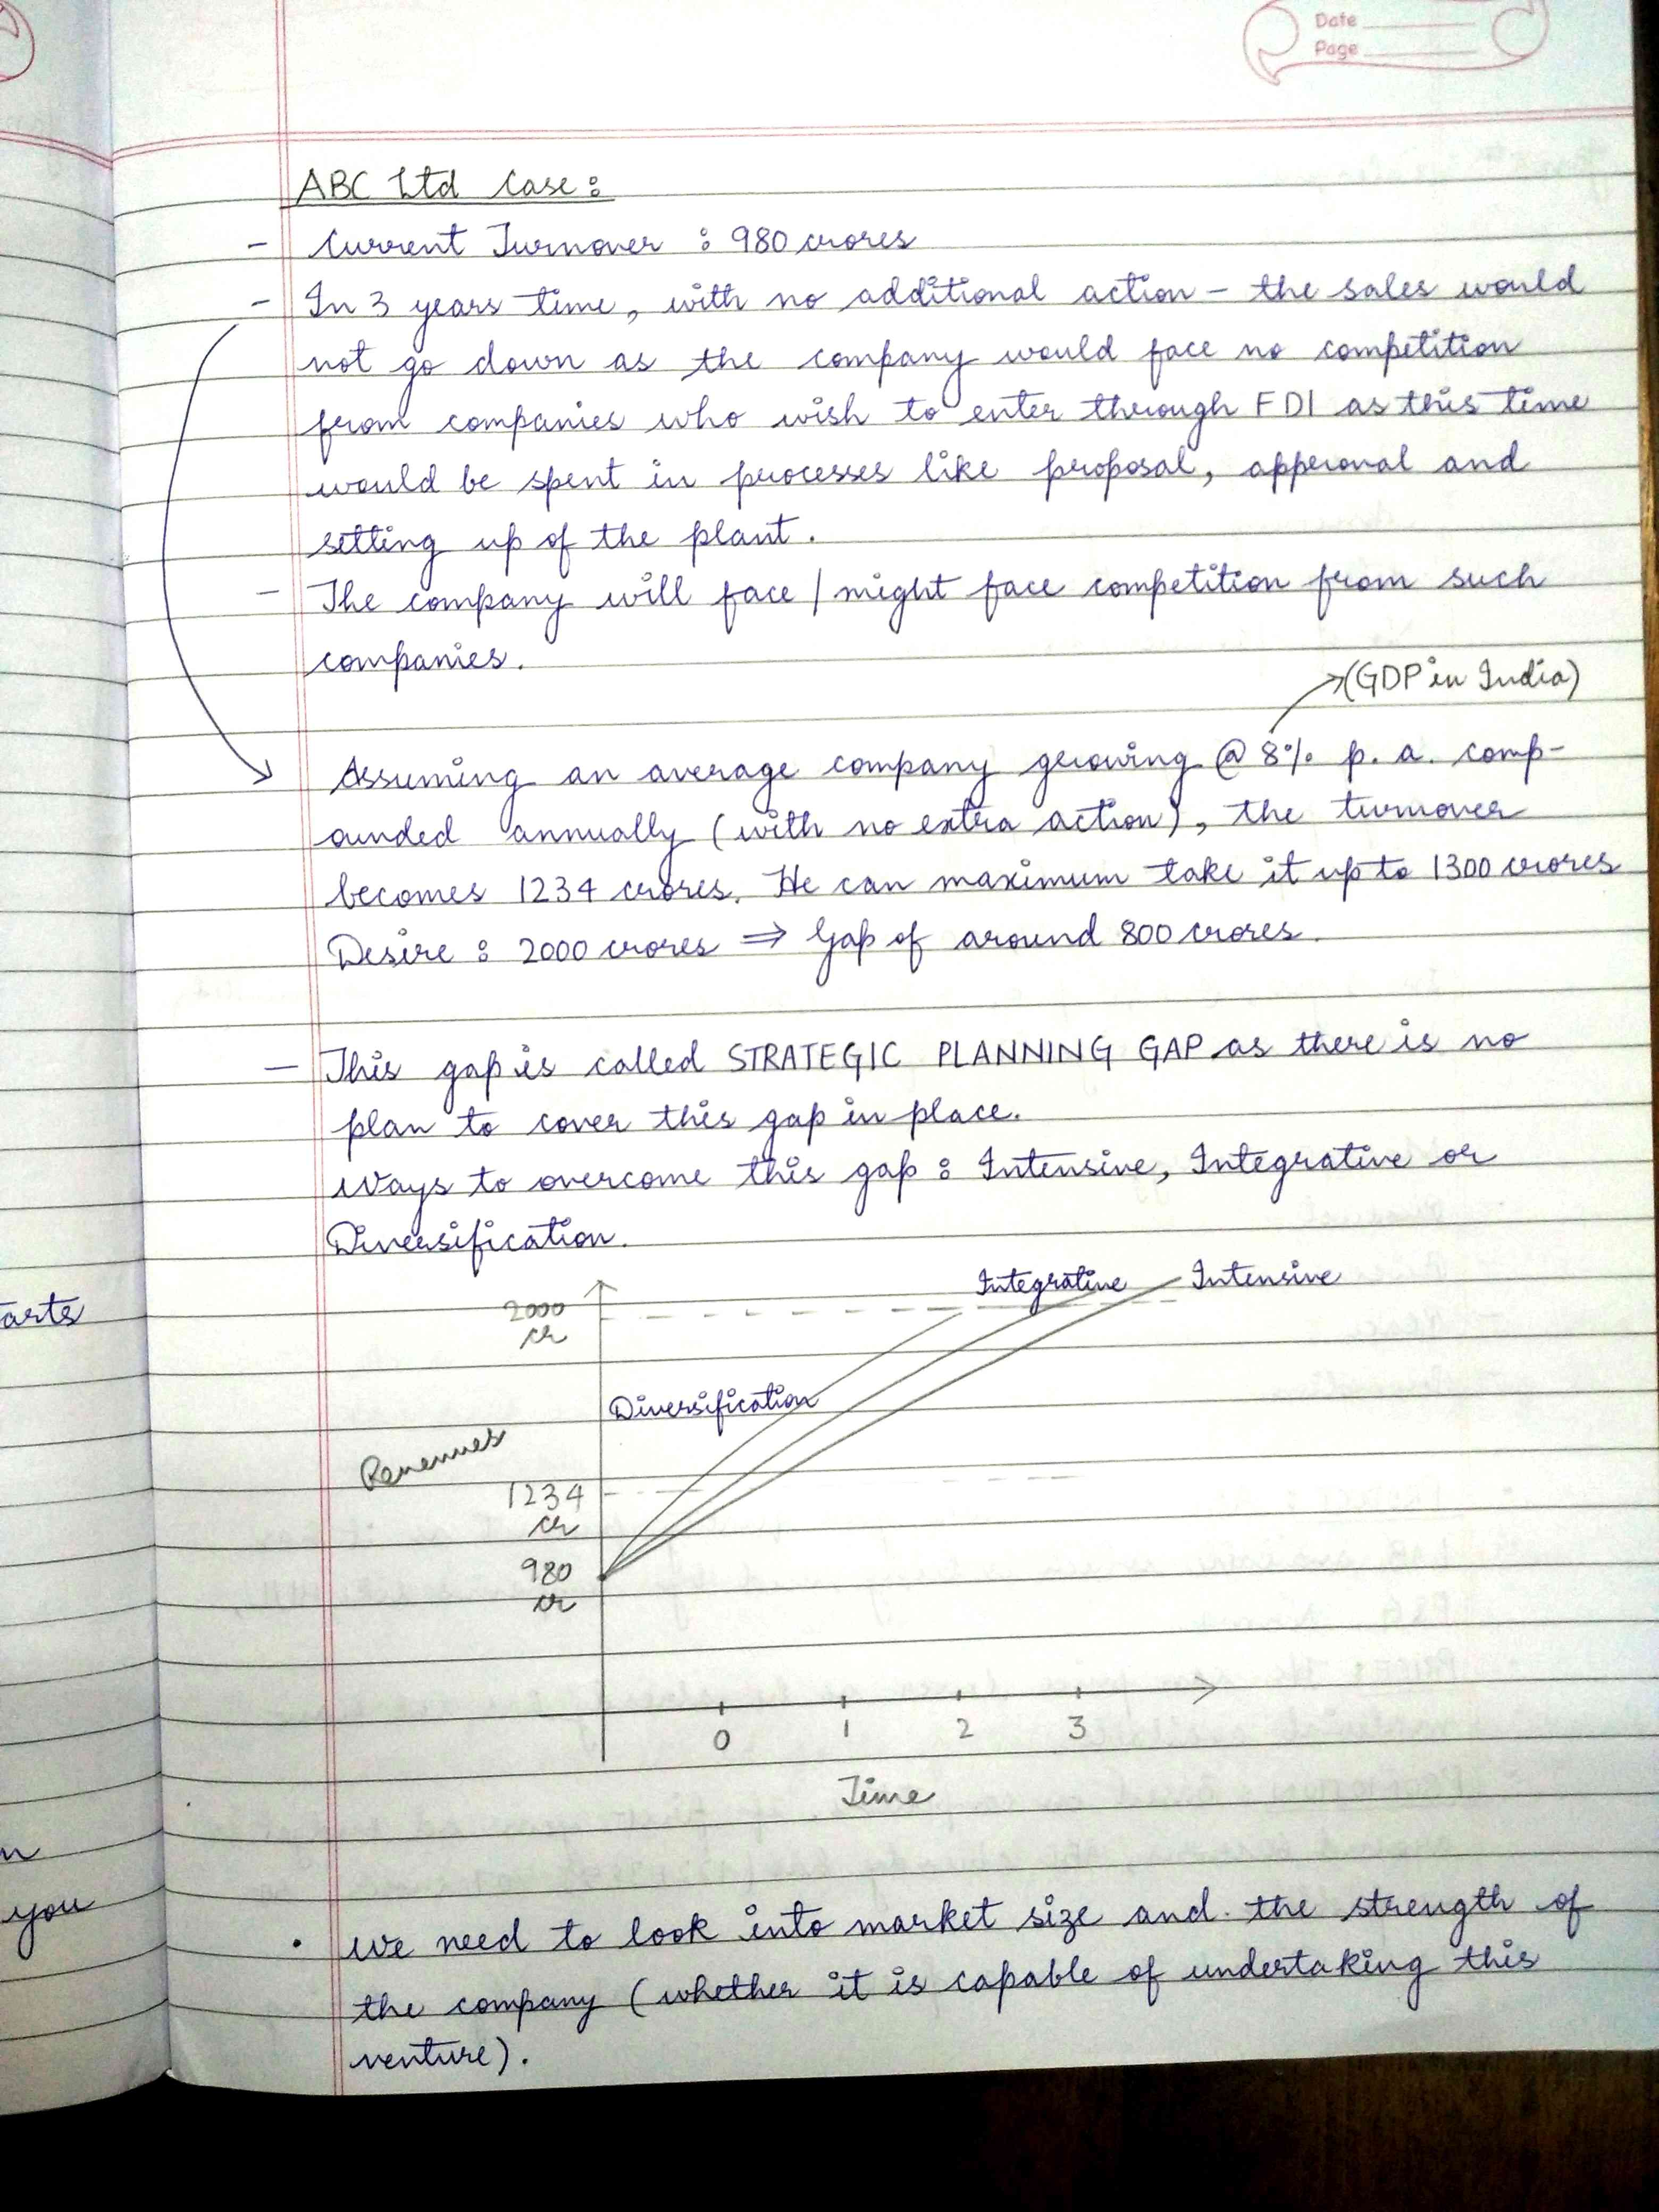 Date
Page
ABC Ltd Case :
- Current Turnover : 980 crores
- In 3 years time, with no additional action - the sales would
not go down as the company would face no competition
from companies who wish to enter through FDI as this time
would be spent in processes like proposal, approval and
setting up of the plant.
- The company will face / might face competition from such
companies.
(GDP in India)
Assuming an average company growing @ 8% p. a. comp-
ounded annually (with no extra action), the turnover
becomes 1234 crores. He can maximum take it up to 1300 crores
Desire : 2000 crores ⇒ Gap of around 800 crores.
- This gap is called STRATEGIC PLANNING GAP as there is no
plan to cover this gap in place.
Ways to overcome this gap : Intensive, Integrative or
Diversification.
Integrative Intensive
2000
cr
Diversification
Revenues
1234
cr
980
cr
0 1 2 3
Time
• We need to look into market size and the strength of
the company (whether it is capable of undertaking this
venture).
arts
n
you